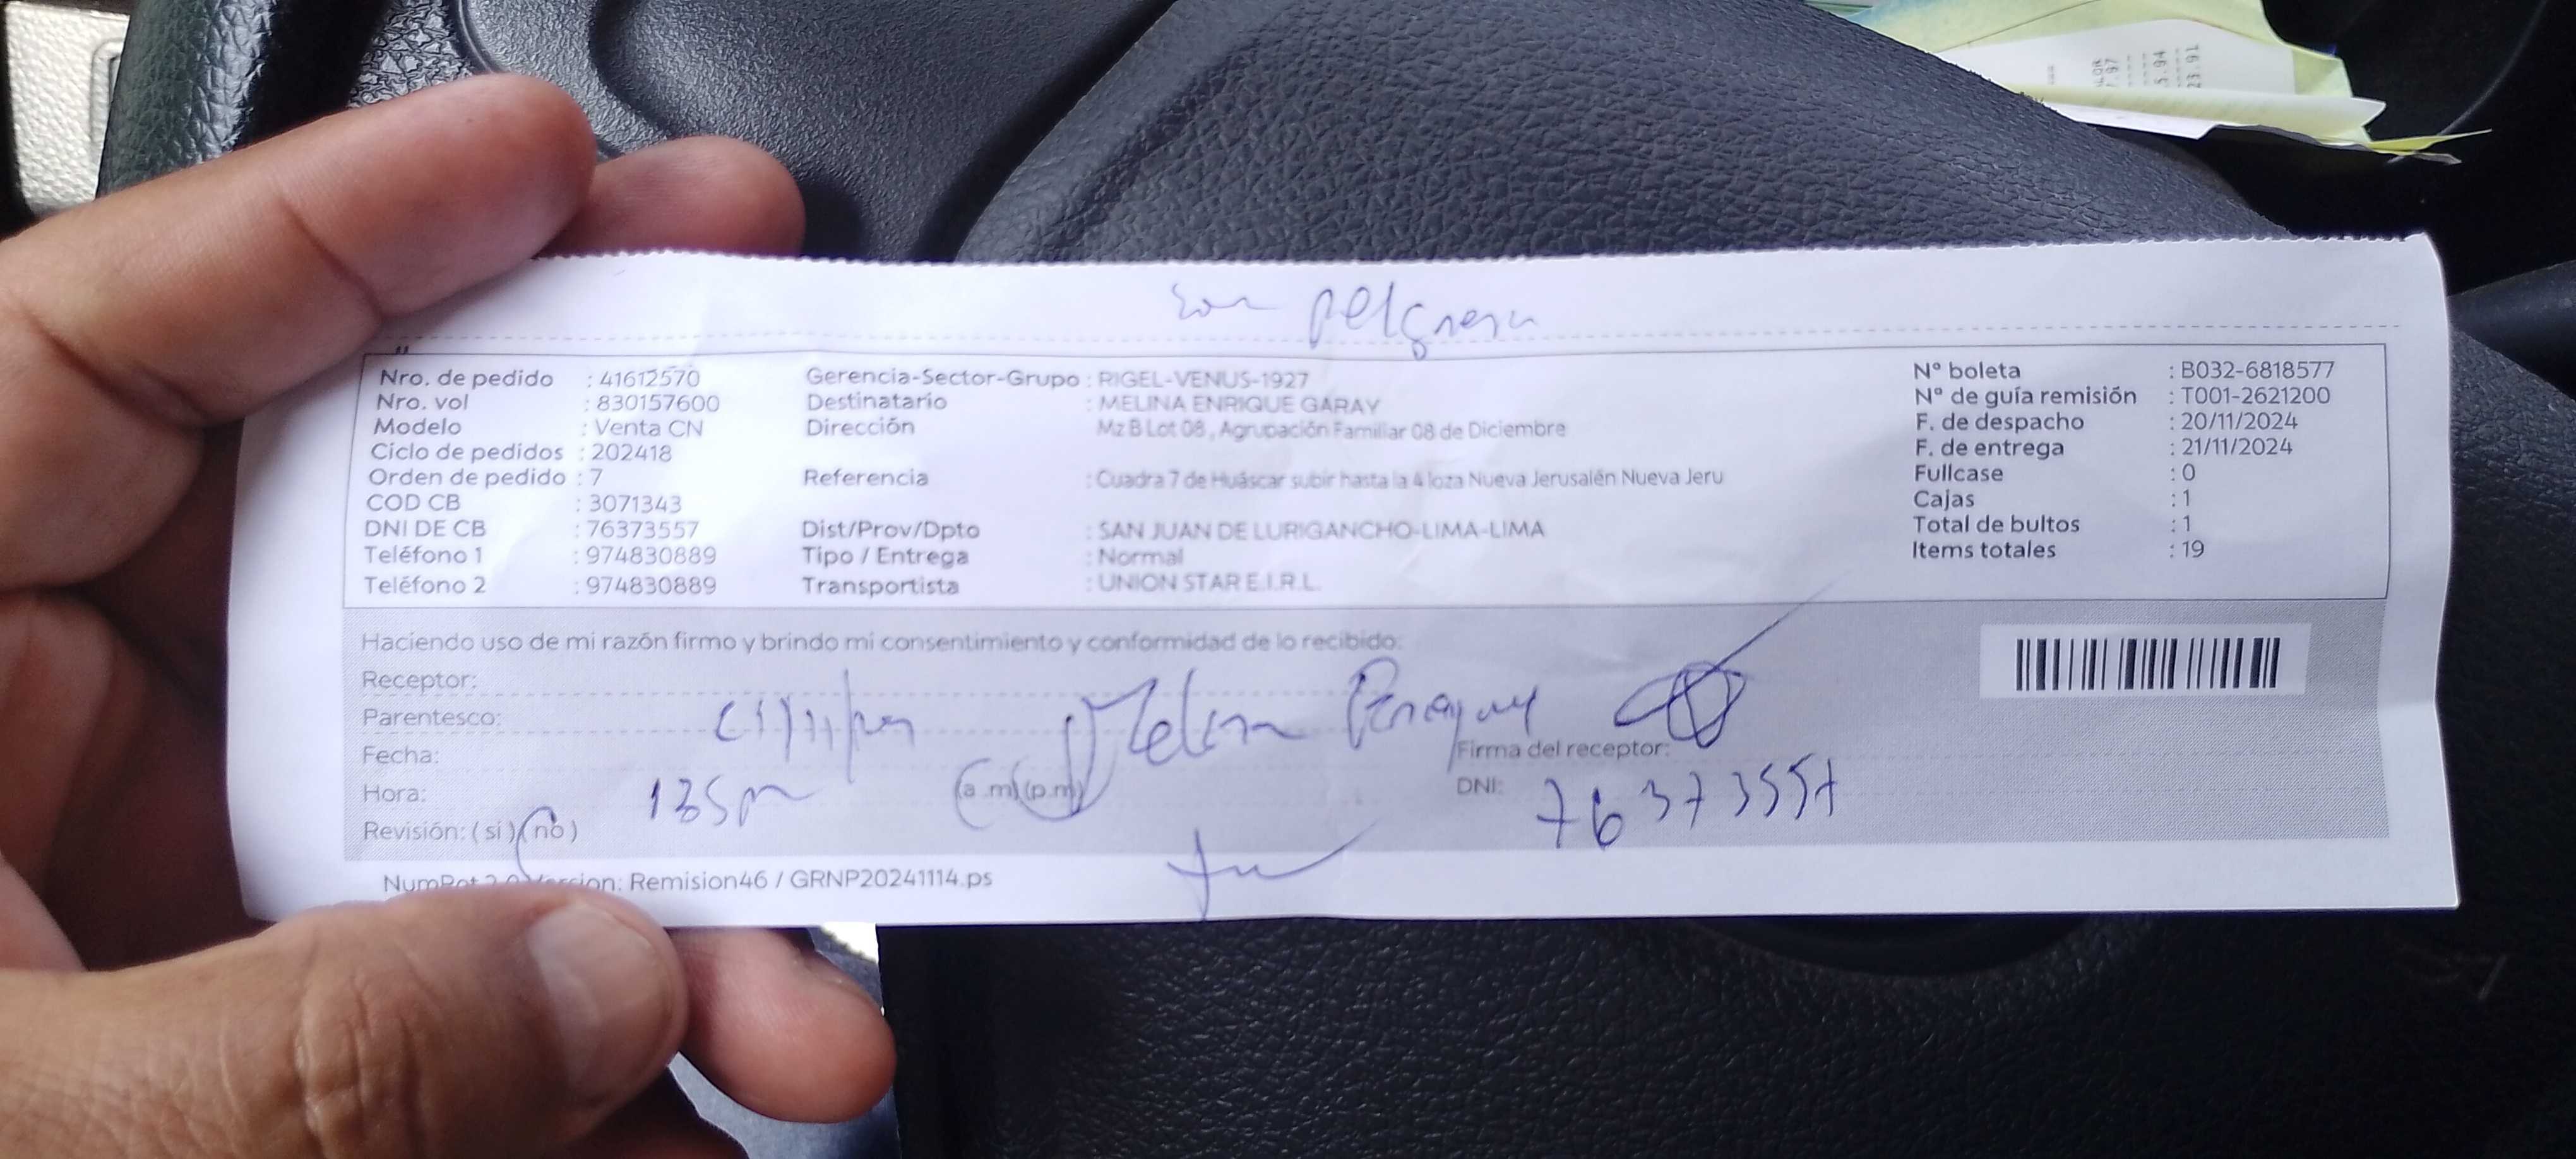 Nro. de pedido : 41612570
Nro. vol : 830157600
Modelo : Venta CN
Ciclo de pedidos : 202418
Orden de pedido : 7
COD CB : 3071343
DNI DE CB : 76373557
Teléfono 1 : 974830889
Teléfono 2 : 974830889
Gerencia-Sector-Grupo : RIGEL-VENUS-1927
Destinatario : MELINA ENRIQUE GARAY
Dirección Mz B Lot 08 , Agrupación Familiar 08 de Diciembre
Referencia : Cuadra 7 de Huáscar subir hasta la 4 loza Nueva Jerusalén Nueva Jeru
Dist/Prov/Dpto : SAN JUAN DE LURIGANCHO-LIMA-LIMA
Tipo / Entrega : Normal
Transportista : UNION STAR E.I.R.L.
N° boleta : B032-6818577
N° de guía remisión : T001-2621200
F. de despacho : 20/11/2024
F. de entrega : 21/11/2024
Fullcase : 0
Cajas : 1
Total de bultos : 1
Items totales : 19
Haciendo uso de mi razón firmo y brindo mi consentimiento y conformidad de lo recibido:
Receptor:
Parentesco:
Fecha:
Firma del receptor:
Hora: (a.m) (p.m)
DNI: 76373557
Revisión: ( si ) ( no )
Remision46 / GRNP20241114.ps
5.94
23.91